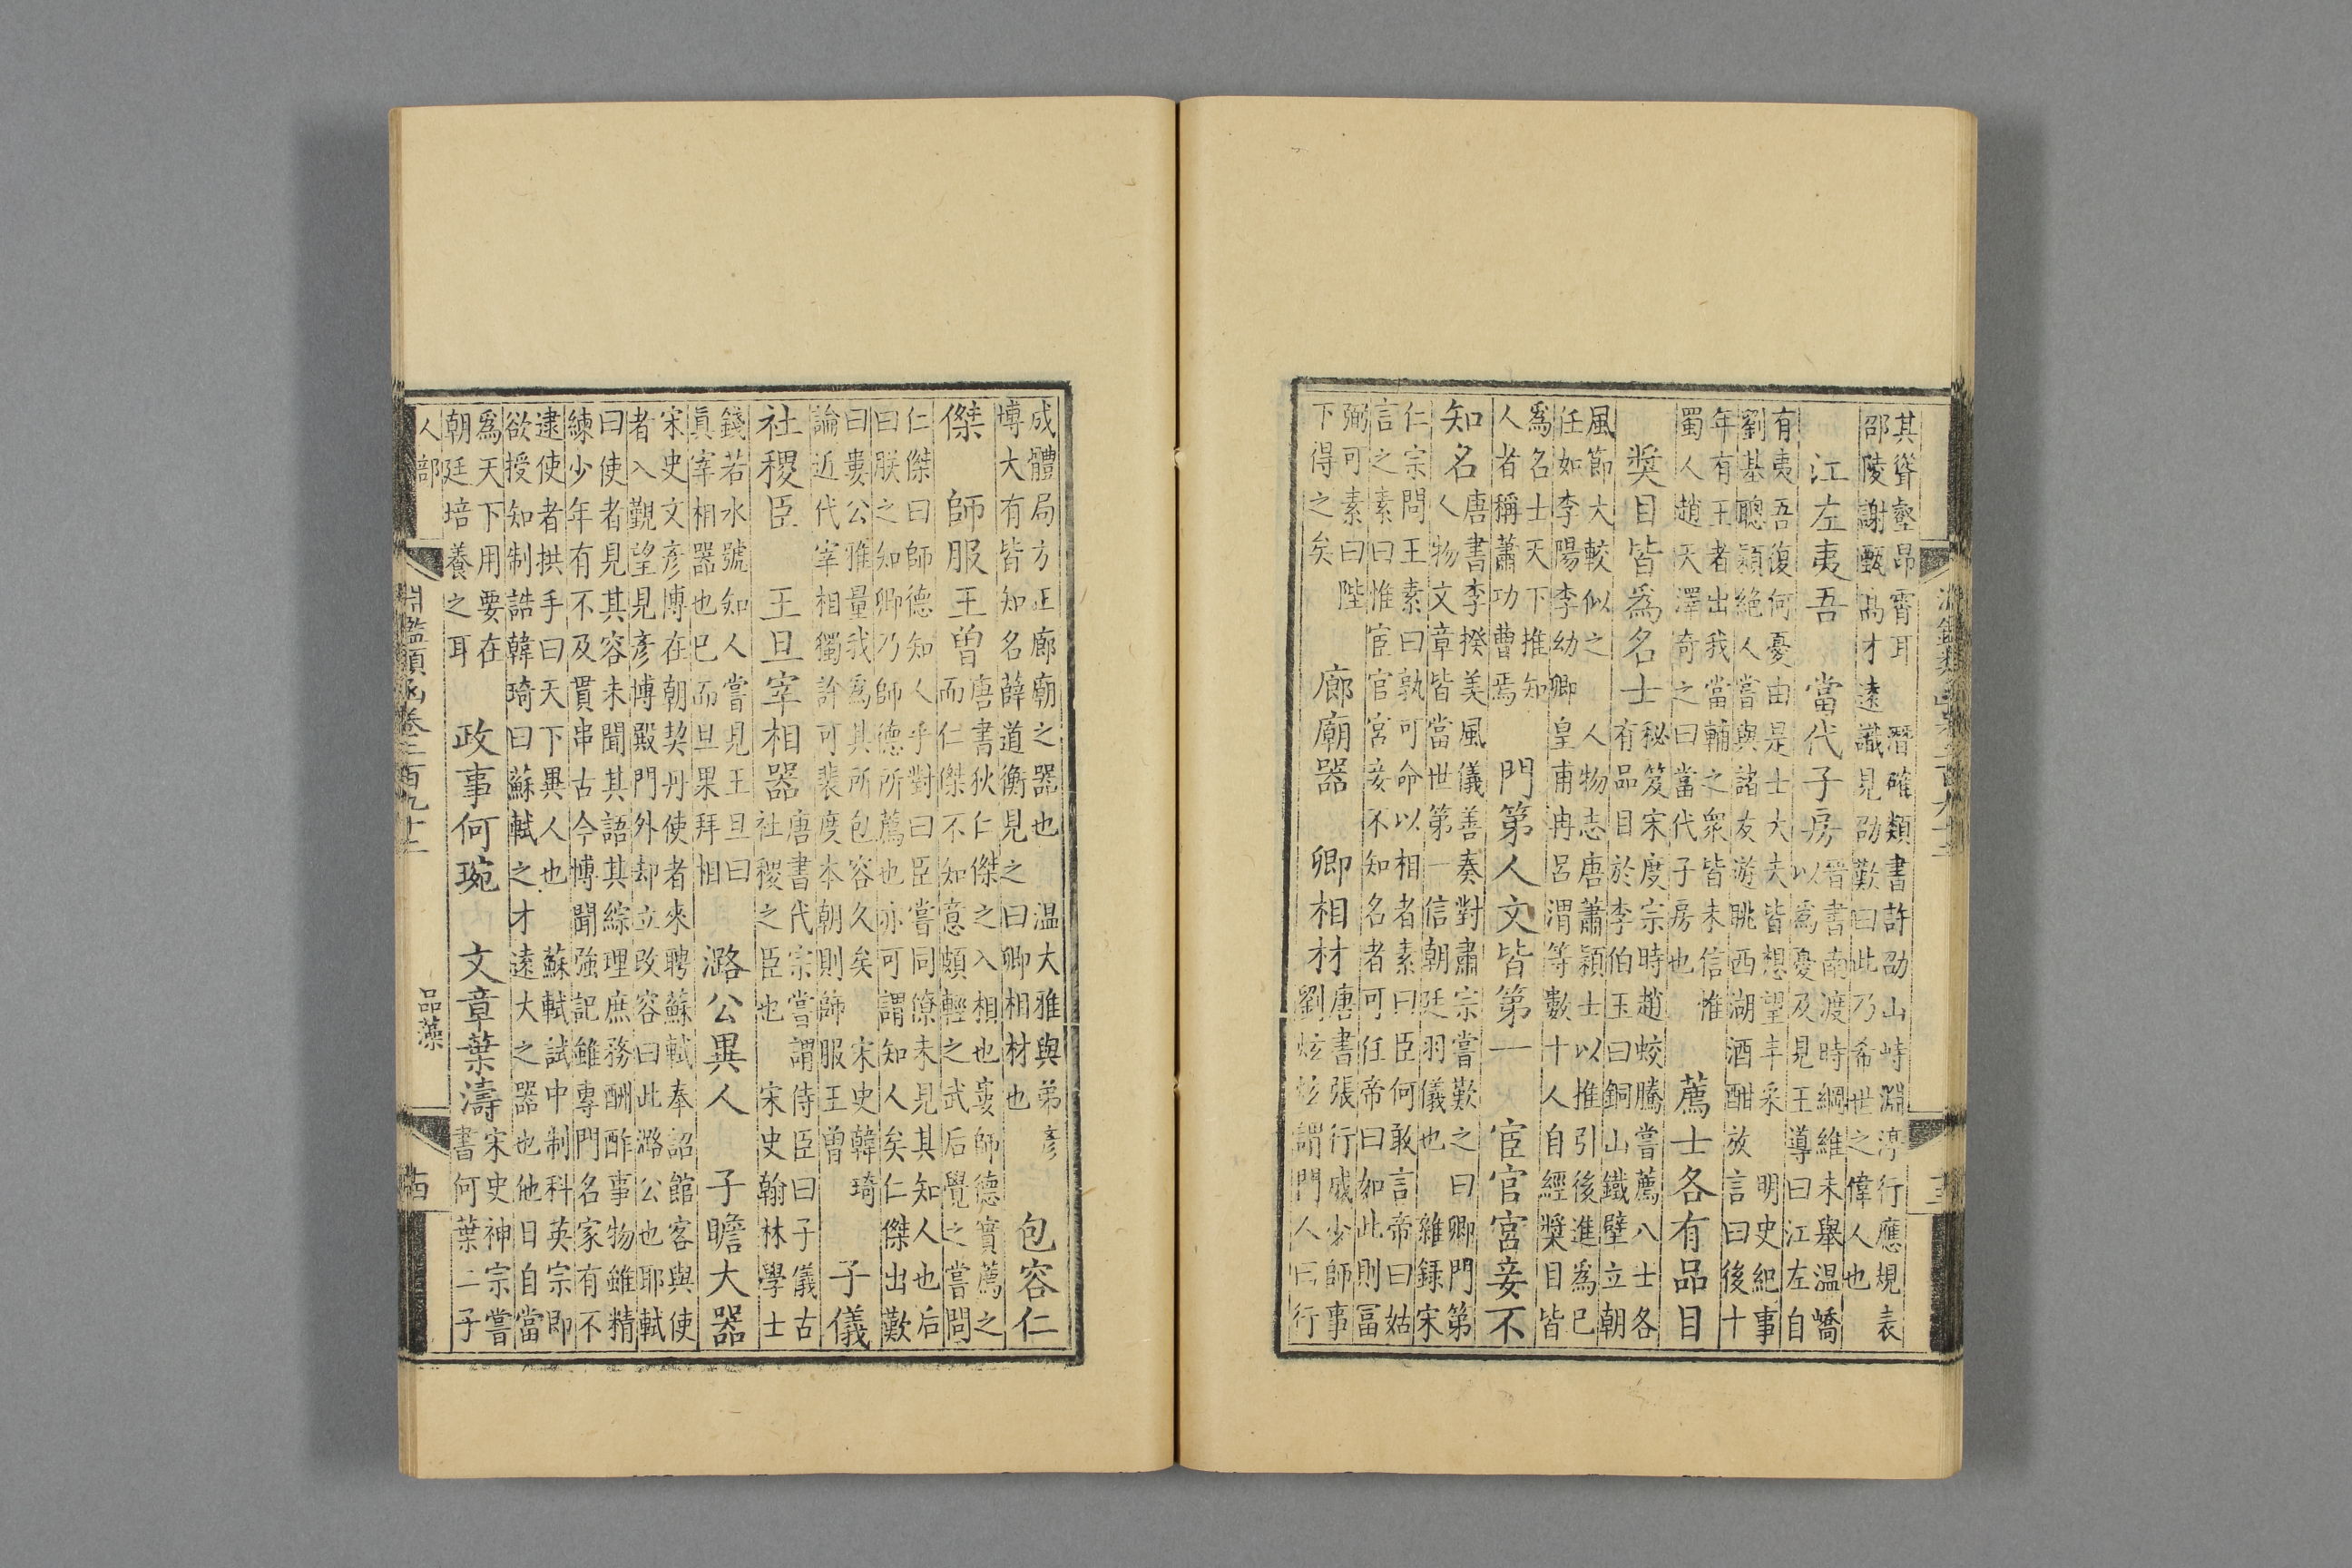 淵鑑類函卷三百九十二
其聳壑昂霄耳 潛確類書許劭山峙淵渟行應規表
邵陵謝甄高才遠識見劭歎曰此乃希世之偉人也
江左夷吾 當代子房
晉書南渡時綱維未舉溫嶠
以爲憂及見王導曰江左自
有夷吾復何憂由是士大夫皆想望丰采 明史紀事
劉基聰穎絕人嘗與諸友遊眺西湖酒酣放言曰後十
年有王者出我當輔之衆皆未信惟
蜀人趙天澤奇之曰當代子房也
薦士各有品目
獎目皆爲名士
秘笈宋度宗時趙蛟騰嘗薦八士各
有品目於李伯玉曰銅山鐵壁立朝
風節大較似之 人物志唐蕭穎士以推引後進爲己
任如李陽李幼卿皇甫冉呂渭等數十人自經獎目皆
爲名士天下推知
人者稱蕭功曹焉
門第人文皆第一 宦官宮妾不
知名
唐書李揆美風儀善奏對肅宗嘗歎之曰卿門第
人物文章皆當世第一信朝廷羽儀也 雜録宋
仁宗問王素曰孰可命以相者素曰臣何敢言帝曰姑
言之素曰惟宦官宮妾不知名者可任帝曰如此則富
弼可素曰陛
下得之矣
廊廟器 卿相材
唐書張行成少師事
劉炫炫謂門人曰行
成體局方正廊廟之器也 温大雅與弟彥
博大有皆知名薛道衡見之曰卿相材也
包容仁
傑 師服王曾
唐書狄仁傑之入相也婁師德實薦之
而仁傑不知意頗輕之武后覺之嘗問
仁傑曰師德知人乎對曰臣嘗同僚未見其知人也后
曰朕之知卿乃師德所薦也亦可謂知人矣仁傑出歎
曰婁公雅量我爲其所包容久矣 宋史韓琦
論近代宰相獨許可裴度本朝則師服王曾
子儀
社稷臣 王旦宰相器
唐書代宗嘗謂侍臣曰子儀古
社稷之臣也 宋史翰林學士
錢若水號知人嘗見王旦曰
眞宰相器也已而旦果拜相
潞公異人 子瞻大器
宋史文彥博在朝契丹使者來聘蘇軾奉詔館客與使
者入覲望見彥博殿門外却立改容曰此潞公也耶軾
曰使者見其容未聞其語其綜理庶務酬酢事物雖精
練少年有不及貫串古今博聞強記雖專門名家有不
逮使者拱手曰天下異人也 蘇軾試中制科英宗即
欲授知制誥韓琦曰蘇軾之才遠大之器也他日自當
爲天下用要在
朝廷培養之耳
政事何琬 文章葉濤
宋史神宗嘗
書何葉二子
人部 淵鑑類函卷三百九十二 品藻